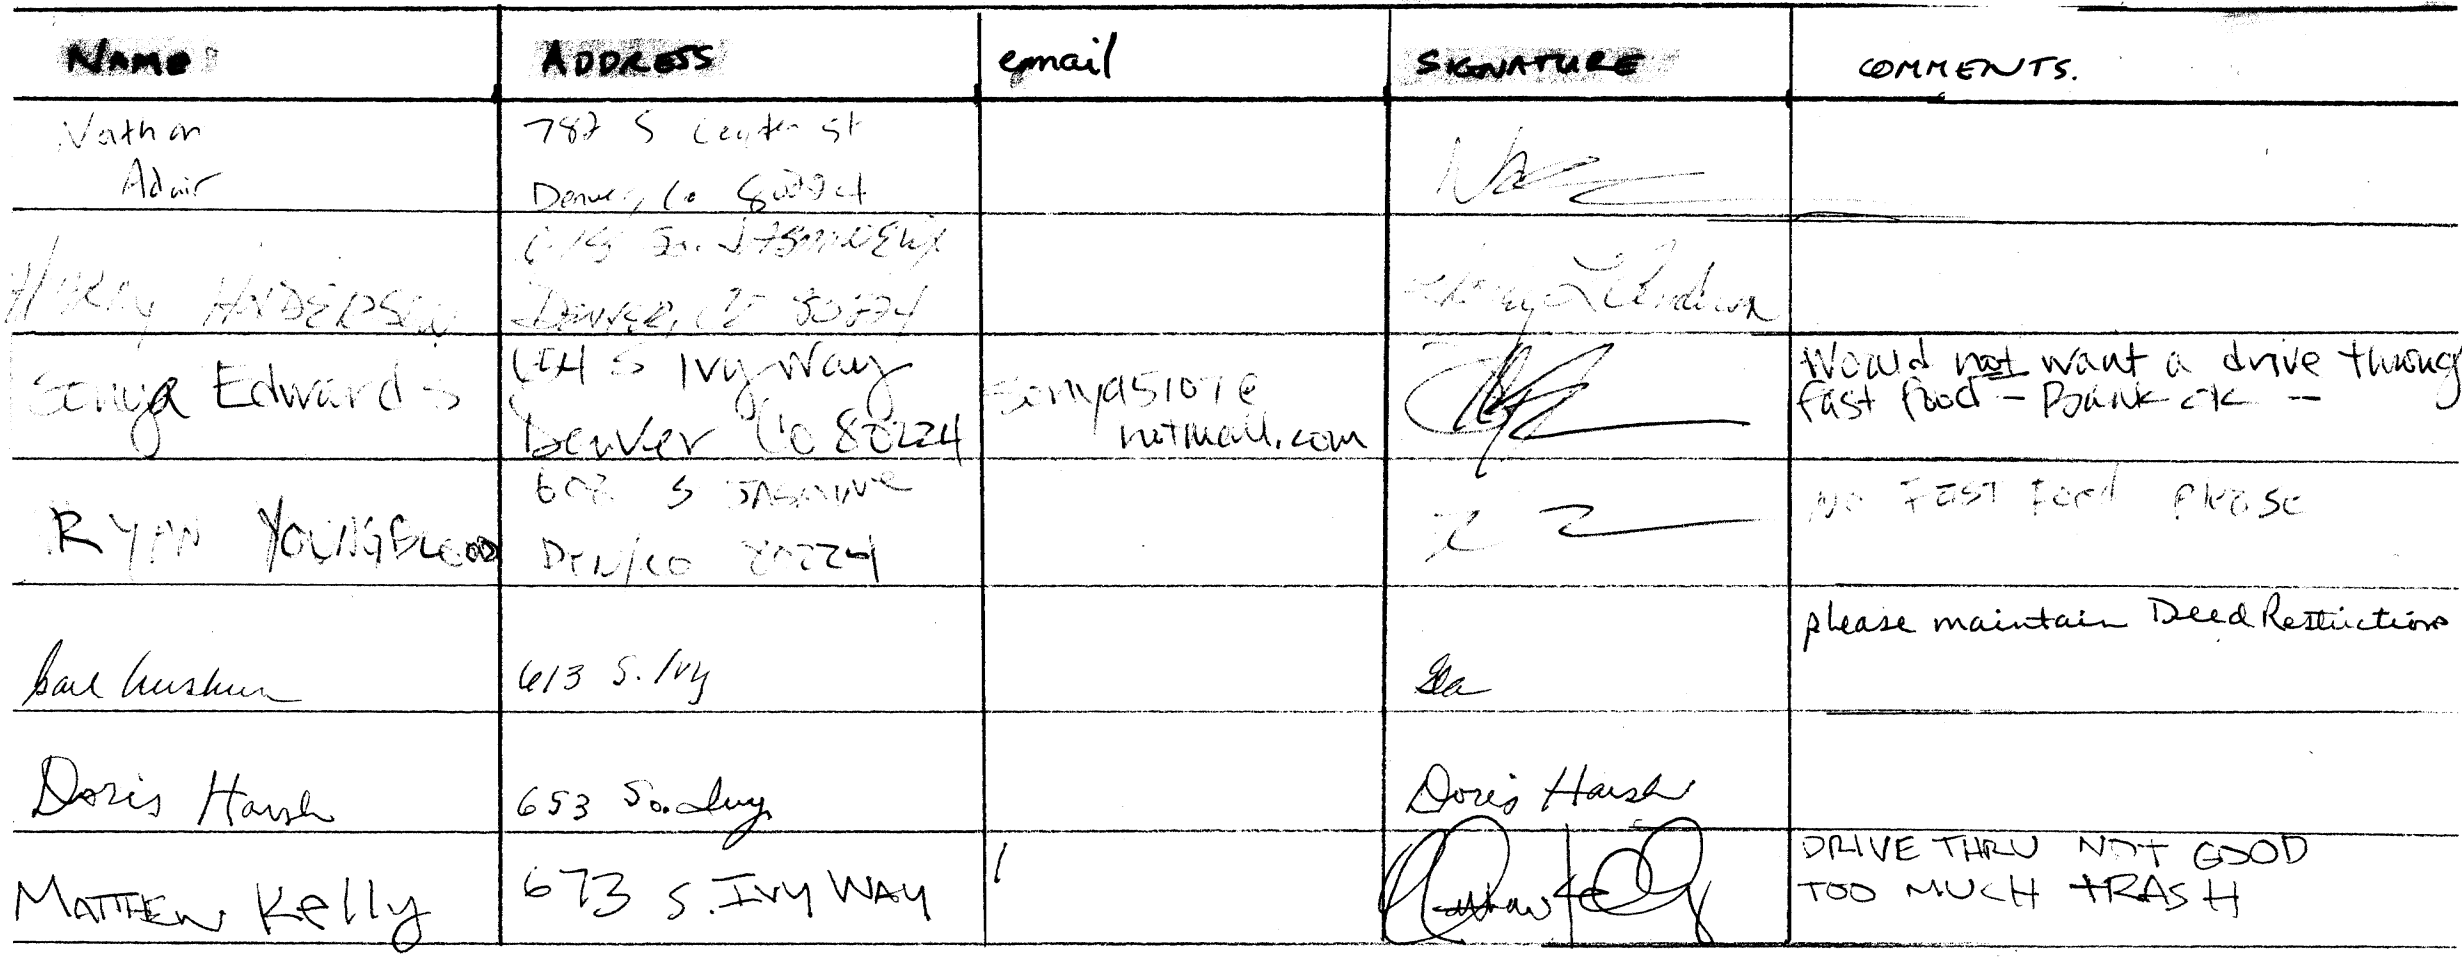 NAME ADDRESS email SIGNATURE COMMENTS.
Nathan
Adair
787 S St
Denver, Co
So.
HARRY ANDERSEN
DENVER, CO 80224
Sonya Edwards
S Ivy Way
Denver Co 80224
hotmail.com
Would not want a drive throug
fast food - Bank ok -
RYAN YOUNGBLOOD
S JASMINE
DEN/CO 80224
NO FAST FOOD PLEASE
613 S. Ivy
please maintain Deed Restrictions
Doris Harsh
653 So. Ivy
Doris Harsh
MATTHEW Kelly
673 S. IVY WAY
DRIVE THRU NOT GOOD
TOO MUCH TRASH